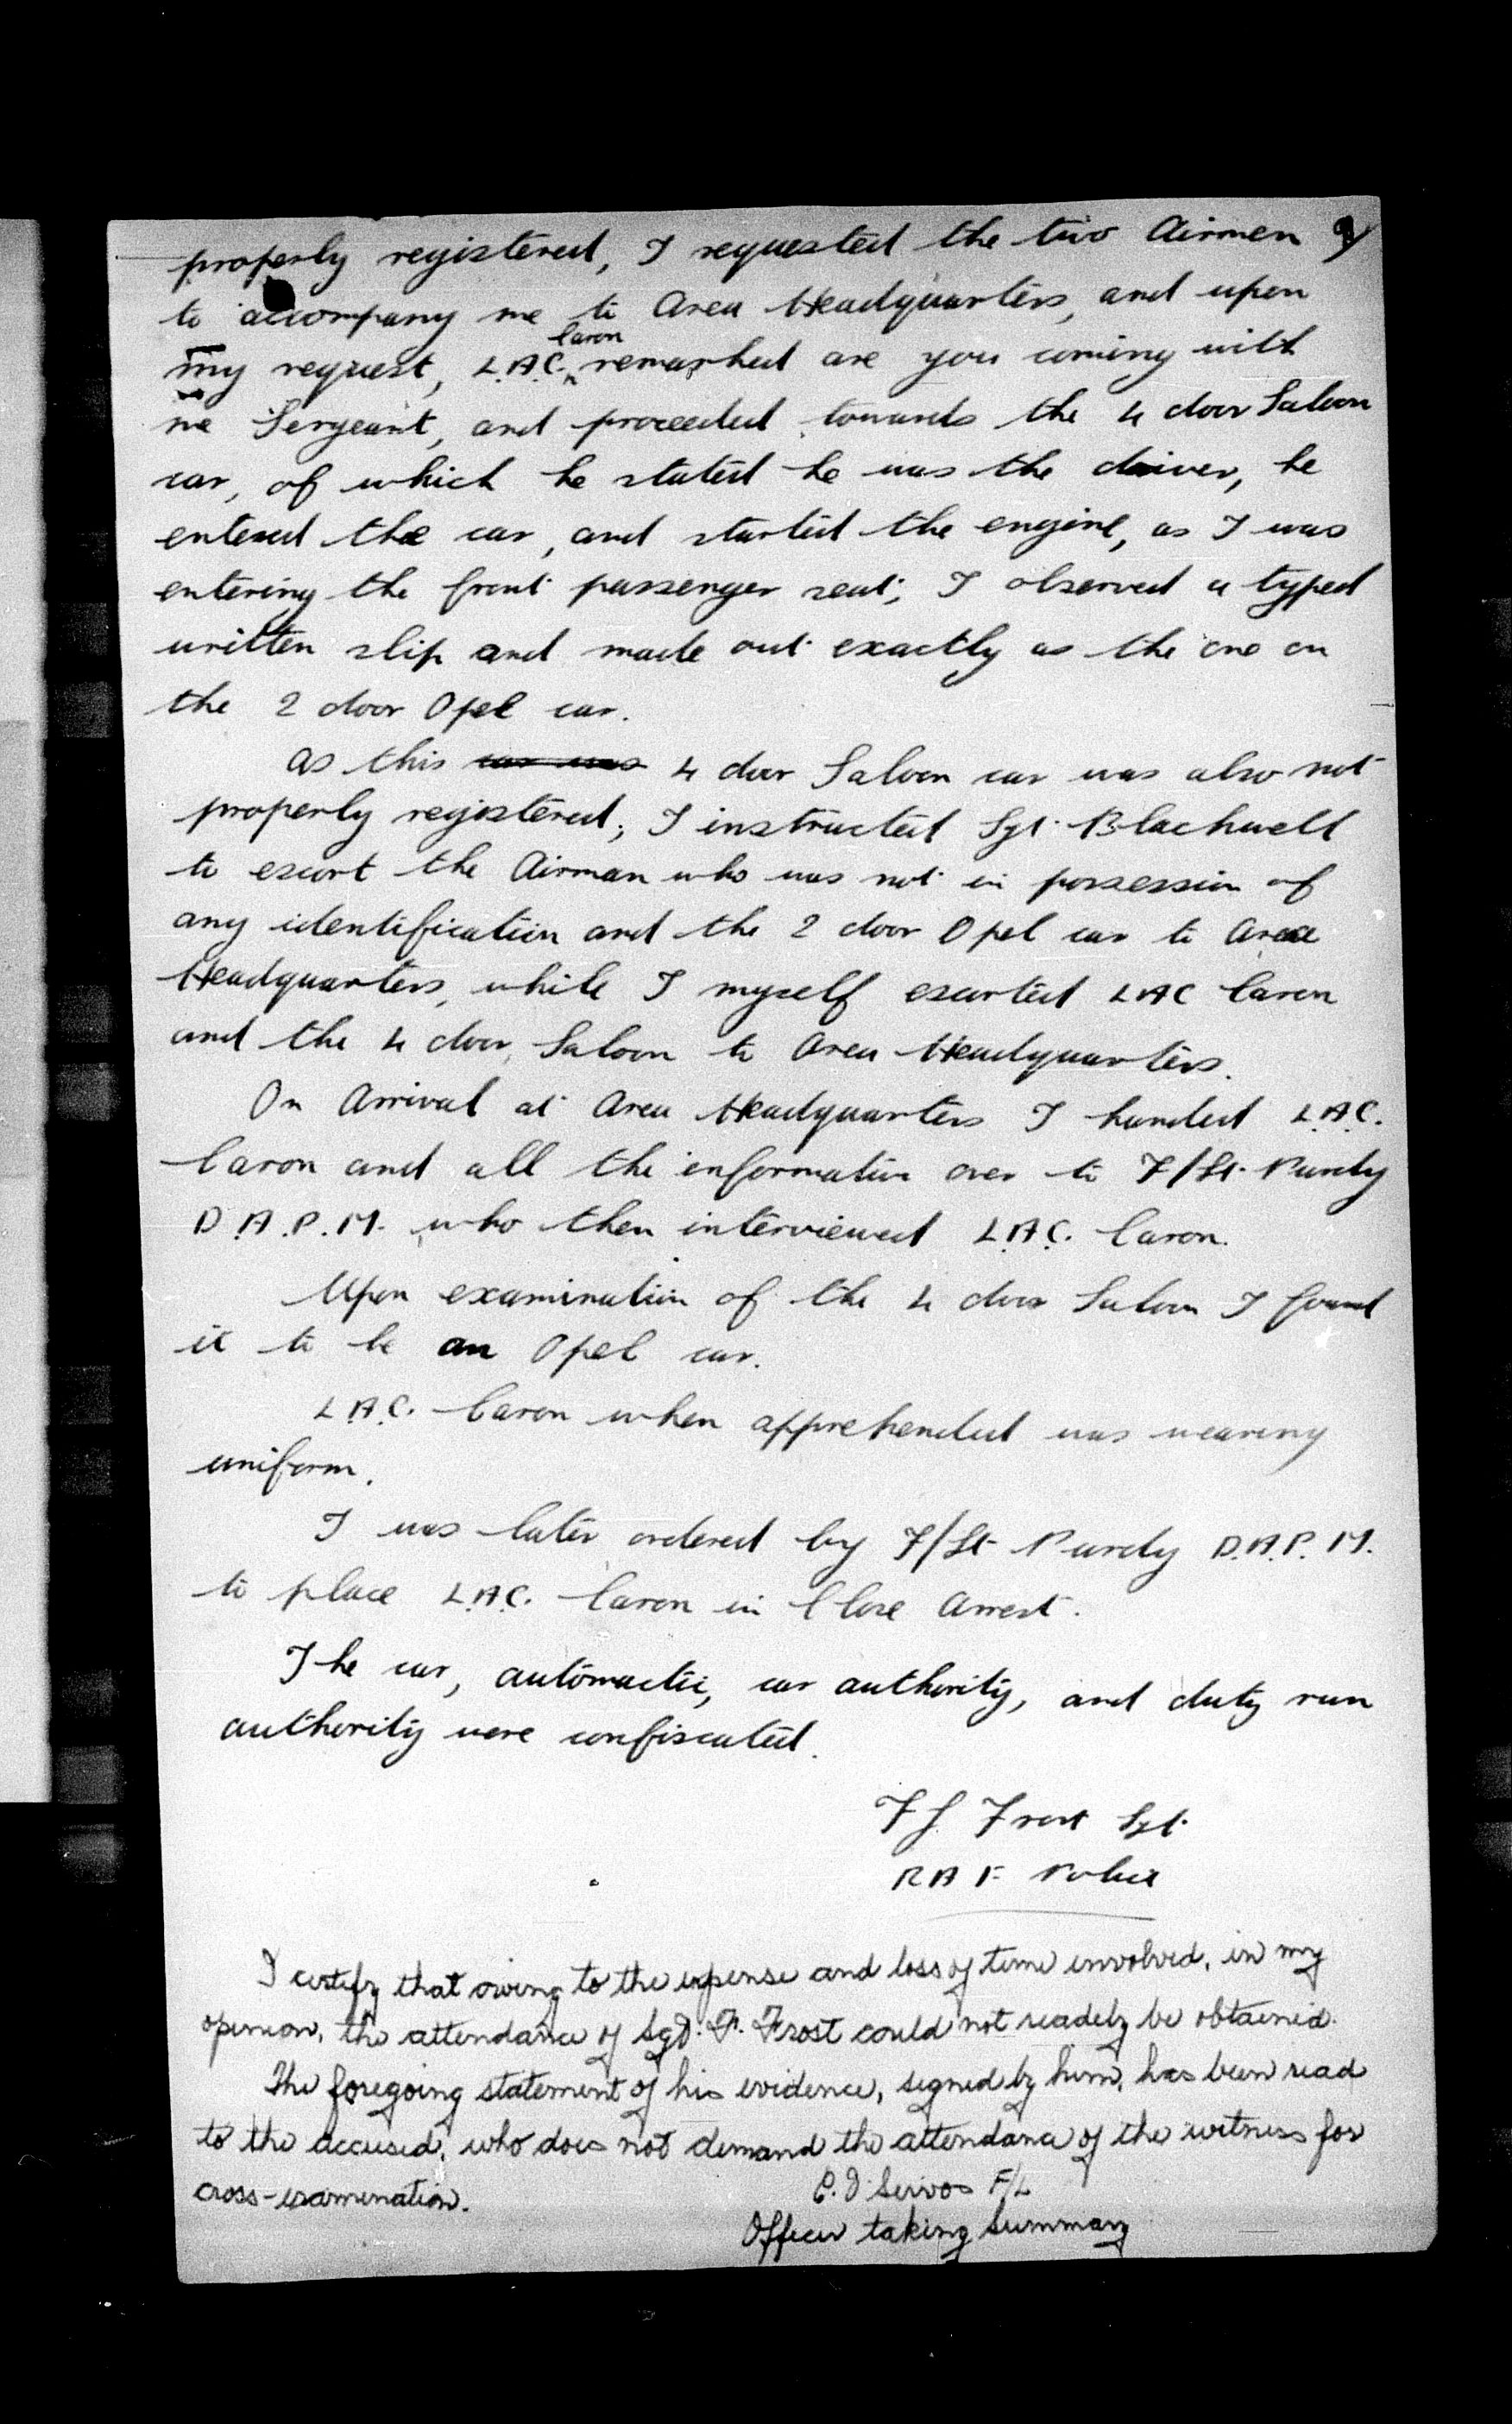 properly registered, I requested the two Airmen
to accompany me to Area Headquarters, and upon
my request, L.A.C. Caron remarked are you coming with
me Sergeant, and proceeded towards the 4 door Saloon
car, of which he stated he was the driver, he
entered the car, and started the engine, as I was
entering the front passenger seat, I observed a typed
written slip and made out exactly as the one on
the 2 door Opel car.
As this car was 4 door Saloon car was also not
properly registered, I instructed Sgt. Blackwell
to escort the Airman who was not in possession of
any identification and the 2 door Opel car to Area
Headquarters, while I myself escorted LAC Caron
and the 4 door Saloon to Area Headquarters.
On Arrival at Area Headquarters I handed L.A.C.
Caron and all the information over to F/Lt. Purdy
D.A.P.M. who then interviewed L.A.C. Caron.
Upon examination of the 4 door Saloon I found
it to be an Opel car.
L.A.C. Caron when apprehended was wearing
uniform.
I was later ordered by F/Lt Purdy D.A.P.M.
to place L.A.C. Caron in Close Arrest.
The car, automactic, car authority, and duty run
authority were confiscated.
F J Frost Sgt.
RAF Police
I certify that owing to the expense and loss of time involved, in my
opinion, the attendance of Sgt. F. Frost could not readely be obtained.
The foregoing statement of his evidence, signed by him, has been read
to the accused, who does not demand the attendance of the witness for
cross-examination.
Servos F/L
Officer taking Summary